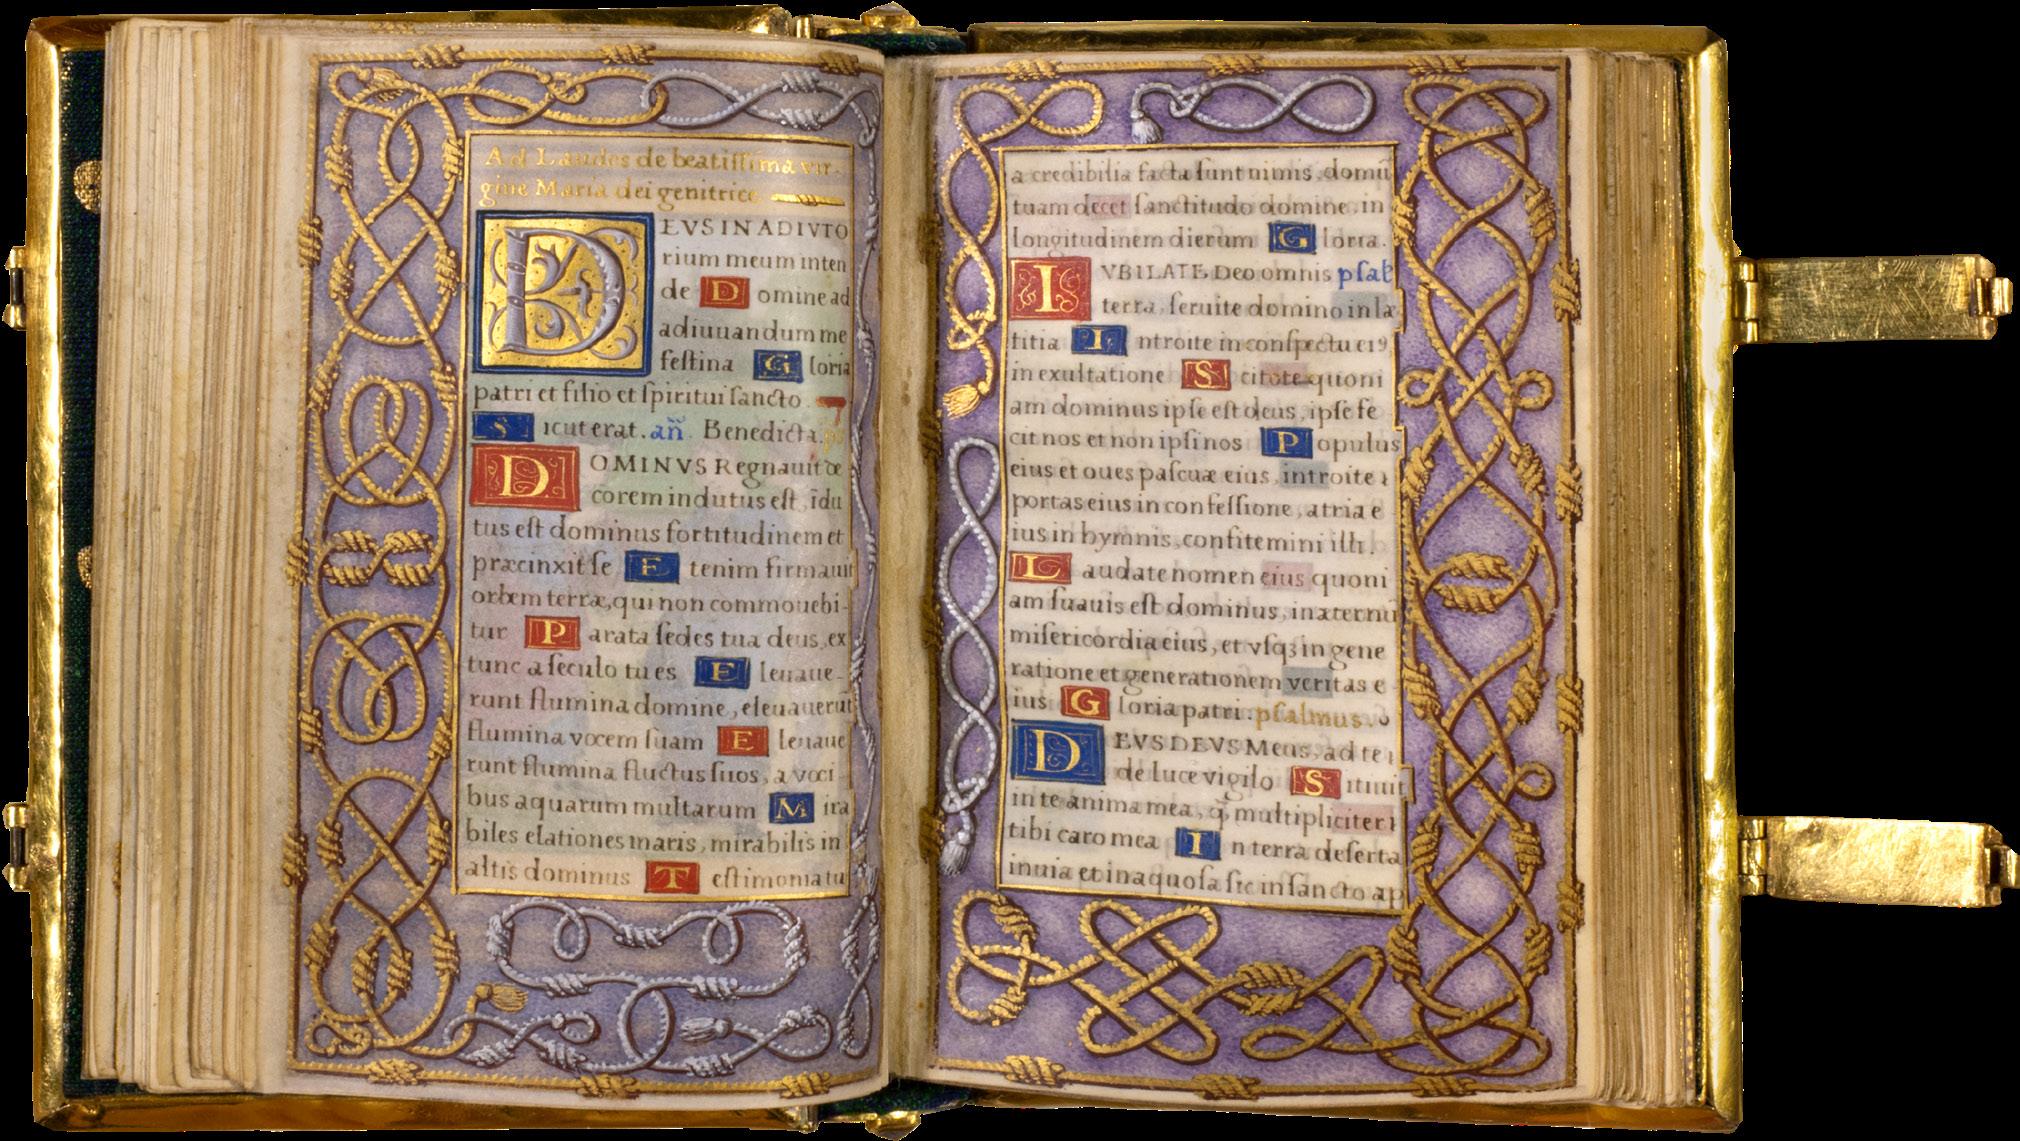 Ad Laudes de beatissima vir-
gine Maria dei genitrice
DEVS IN ADIVTO
rium meum inten
de Domine ad
adiuuandum me
festina Gloria
patri et filio et spiritui sancto.
Sicut erat. an̄. Benedicta. ps
DOMINVS Regnauit de
corem indutus est, īdu
tus est dominus fortitudinem et
præcinxit se Etenim firmauit
orbem terræ, qui non commouebi-
tur Parata sedes tua deus, ex
tunc a seculo tu es Eleuaue-
runt flumina domine, eleuauerūt
flumina vocem suam Eleuaue
runt flumina fluctus suos, a voci-
bus aquarum multarum Mira
biles elationes maris, mirabilis in
altis dominus Testimonia tu
a credibilia facta sunt nimis, domū
tuam decet sanctitudo domine, in
longitudinem dierum Gloria.
IVBILATE Deo omnis psal
terra, seruite domino in læ
titia Introite in conspectu ei9
in exultatione Scitote quoni
am dominus ipse est deus, ipse fe
cit nos et non ipsi nos Populus
eius et oues pascuæ eius, introite
portas eius in confessione, atria e
ius in hymnis, confitemini illi.
Laudate nomen eius quoni
am suauis est dominus, in æternū
misericordia eius, et vsqꝫ in gene
ratione et generationem veritas e
ius Gloria patri. psalmus.
DEVS DEVS Meus, ad te
de luce vigilo Sitiuit
in te anima mea, q̄ multipliciter
tibi caro mea In terra deserta
inuia et inaquosa sic in sancto ap